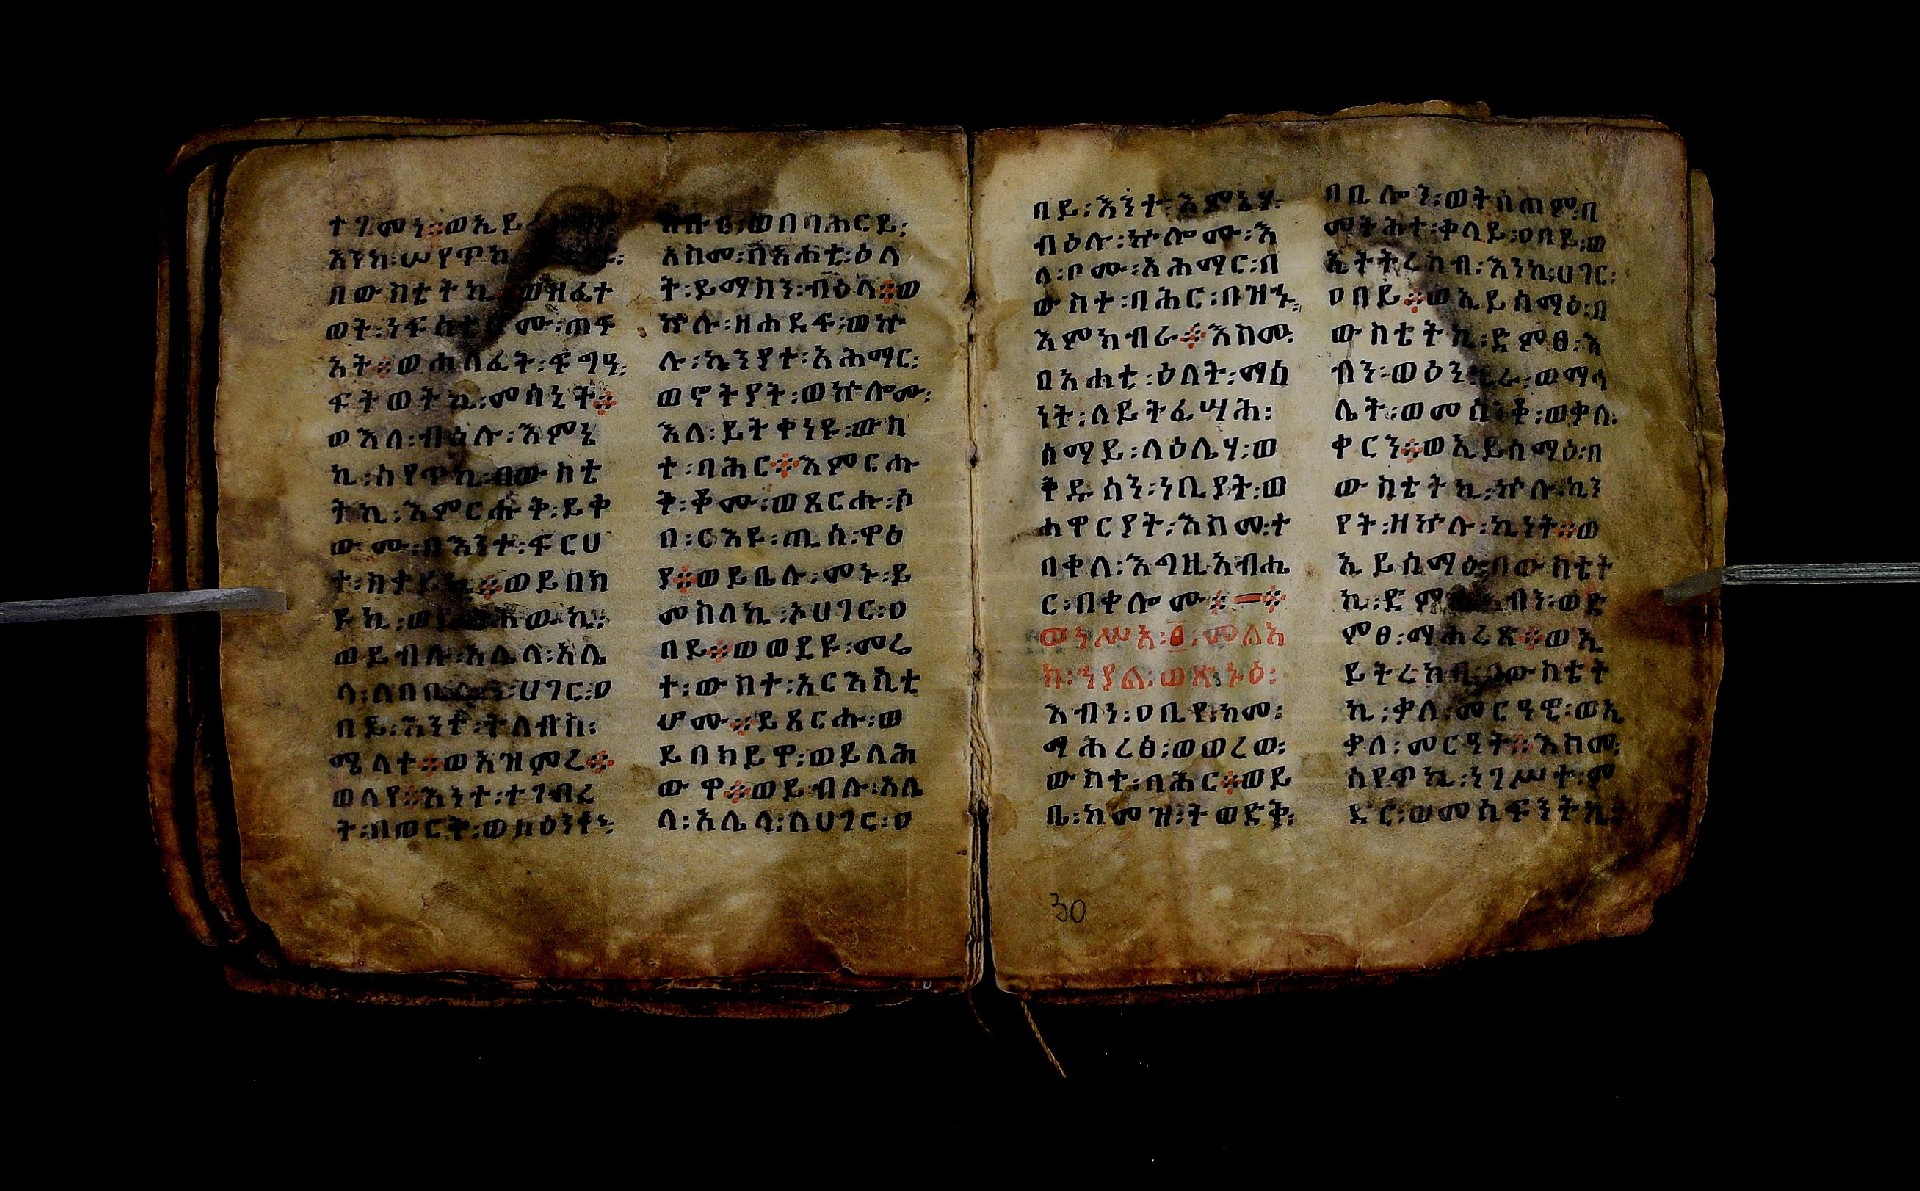 ተገመነ፡፡
እንከ፡ሠየጥከ
በውስቴትኪ ወዝፈተ
ወት፡ ሙ፡ጠፍ
አት፡፡ወሐለፈት፡ፍግዓ፡
ፍትወትኪ፡መሰኒት፡፡
ወእለ፡ብዕሉ፡እምኔ
ኪ፡ሰየጥኪ፡በውስቴ
ትኪ፡እምርሑቅ፡ይቀ
ውሙ፡በእንተ፡ፍርሀ
ተ፡ ወይበክ
ዩኪ፡
ወይብሉ፡አሌላ፡አሌ
ላ፡ለባቢሎን፡ሀገር፡ዐ
ባይ፡እንተ፡ትለብስ፡
ሜላተ፡፡ወአዝምረ፡፡
ወለየ፡፡እንተ፡ተገብረ
ት፡በወርቅ፡ወበዕንቍ፡
ወበባሕርይ፡
እስመ፡በአሐቲ፡ዕለ
ት፡ይማስን፡ብዕላ፡፡ወ
ኵሉ፡ዘሐደፋ፡ወኵ
ሉ፡ኪንያተ፡አሕማር፡
ወኖትያት፡ወኵሎሙ፡
እለ፡ይትቀነዩ፡ውስ
ተ፡ባሕር፡፡እምርሑ
ቅ፡ቆሙ፡ወጸርሑ፡ሶ
በ፡ርእዩ፡ጢሰ፡ዋዕ
ያ፡፡ወይቤሉ፡መኑ፡ይ
መስለኪ፡ኦሀገር፡ዐ
ባይ፡፡ወወደዩ፡መሬ
ተ፡ውስተ፡አርእስቲ
ሆሙ፡፡ይጸርሑ፡ወ
ይበክይዋ፡ወይላሕ
ውዋ፡፡ወይብሉ፡አሌ
ላ፡አሌላ፡ለሀገር፡ዐ
ባይ፡እንተ፡እምኔሃ፡
ብዕሉ፡ኵሎሙ፡እ
ለ፡ቦሙ፡አሕማር፡በ
ውስተ፡ባሕር፡በዝኁ፡
እምክብራ፡፡እስመ፡
በአሐቲ፡ዕለት፡ማሰ
ነት፡ለይትፌሣሕ፡
ሰማይ፡ላዕሌሃ፡ወ
ቅዱሳን፡ነቢያት፡ወ
ሐዋርያት፡እስመ፡ተ
በቀለ፡እግዚአብሔ
ር፡በቀሎሙ፡፡
ወነሥአ፡፩፡መልአ
ክ፡ኃያል፡ወጽኑዕ፡
እብን፡ዐቢየ፡ከመ፡
ማሕረፅ፡ወወረወ፡
ውስተ፡ባሕር፡፡ወይ
ቤ፡ከመዝ፡ትወድቅ፡
ባቢሎን፡ወትሰጠም፡በ
መትሕተ፡ቀላይ፡ዐባይ፡ወ
ኢትትረከብ፡እንከ፡ሀገር፡
ዐባይ፡፡ወኢይሰማዕ፡በ
ውስቴትኪ፡ድምፀ፡እ
ብን፡ ወማኅ
ሌት፡ወመሰንቆ፡ወቃለ፡
ቀርን፡፡ወኢይሰማዕ፡በ
ውስቴትኪ፡ኵሉ፡ኪን
የት፡ዘኵሉ፡ኪነት፡፡ወ
ኢይሰማዕ፡በውስቴት
ኪ፡ ወድ
ምፀ፡ማሕረጽ፡፡ወኢ
ይትረከብ፡በውስቴት
ኪ፡ቃለ፡መርዓዊ፡ወኢ
ቃለ፡መርዓት፡፡እስመ፡
ሰየጥኪ፡ነገሥተ፡ም
ድር፡ወመስፍንትኪ፡
30